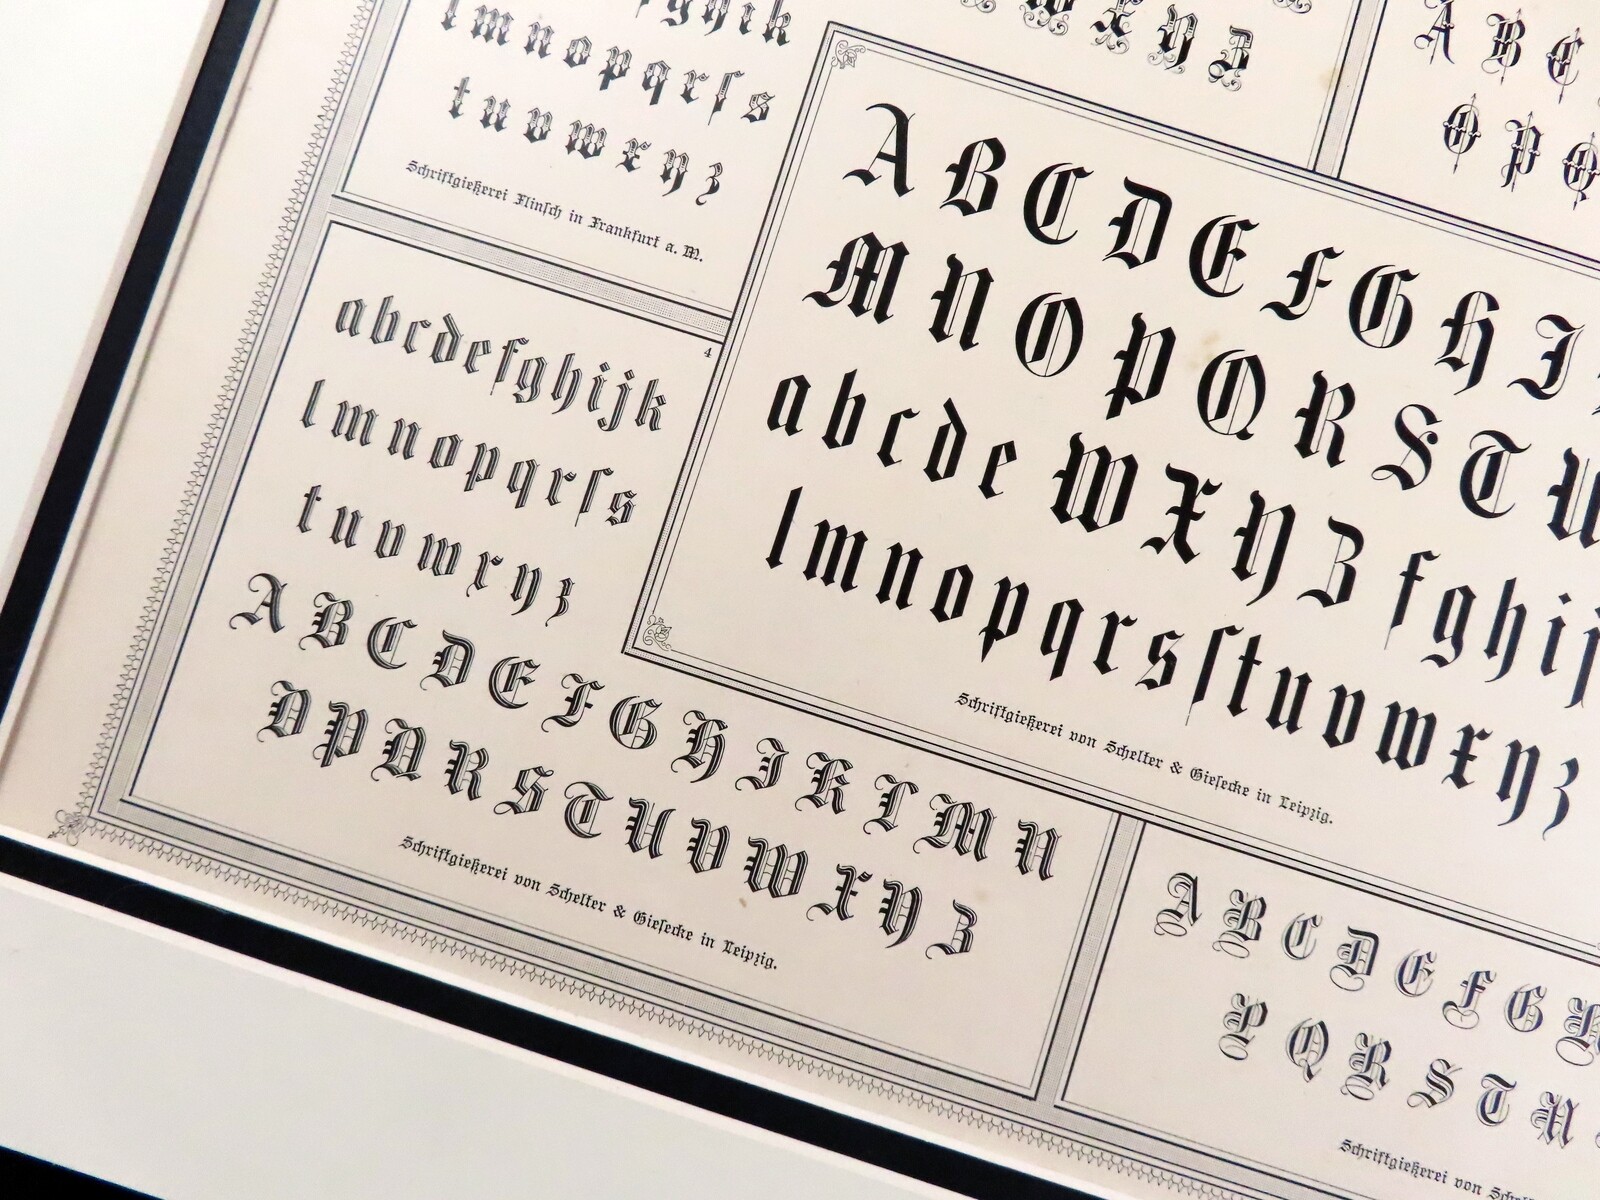 fghik
lmnopqrſs
tuvwxyz
Schriftgießerei Flinſch in Frankfurt a. M.
WXYZ
ABC
OPQ
ABCDEFGHI
MNOPQRSTU
abcde WXYZ fghij
lmnopqrsſtuvwxyz
Schriftgießerei von Schelter & Gieſecke in Leipzig.
4
abcdefghijk
lmnopqrſs
tuvwxyz
ABCDEFGHIKLMN
OPQRSTUVWXYZ
Schriftgießerei von Schelter & Gieſecke in Leipzig.
ABCDEFGH
PQRSTU
Schriftgießerei von